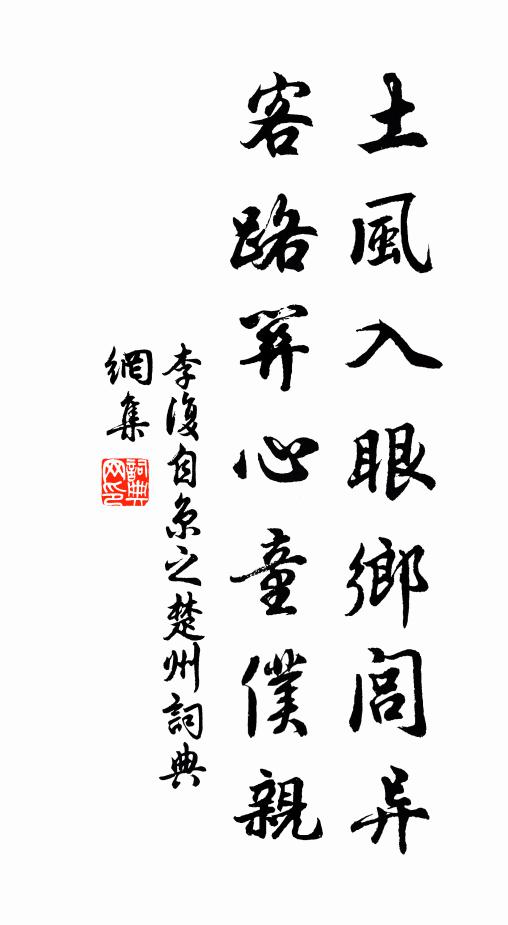 土風入眼鄉閭异
客路羇心童僕親
李復自京之楚州詞典
網集
詞典
网印